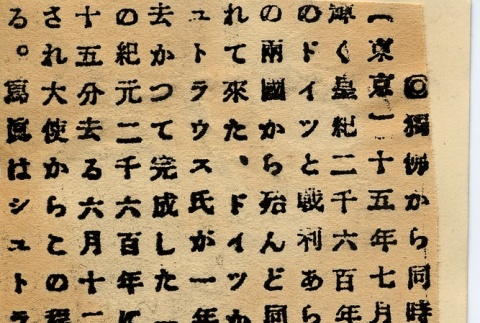 ◎獨佛から同時
【東京】十五年七月
輝く皇紀二千六百年
のドイツと戰利あら
の兩國から殆んど同
れて來た、ドイツか
ュトラウス氏が一年
去かつて完成した一
の紀元二千六百年に
十五分去る六月十二
され大使からこの程
る。寫眞はシュトラ